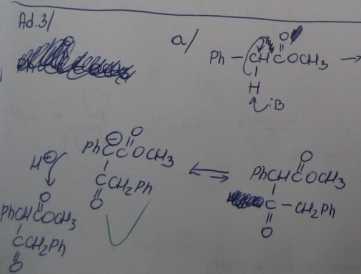 Ad.3/
a/
O
Ph-CH-COCH3 →
H
:B
O
PhC-COCH3
C-CH2Ph
O
H⊕
O
PhCHCOCH3
CCH2Ph
O
O
PhCHCOCH3
C-CH2Ph
O